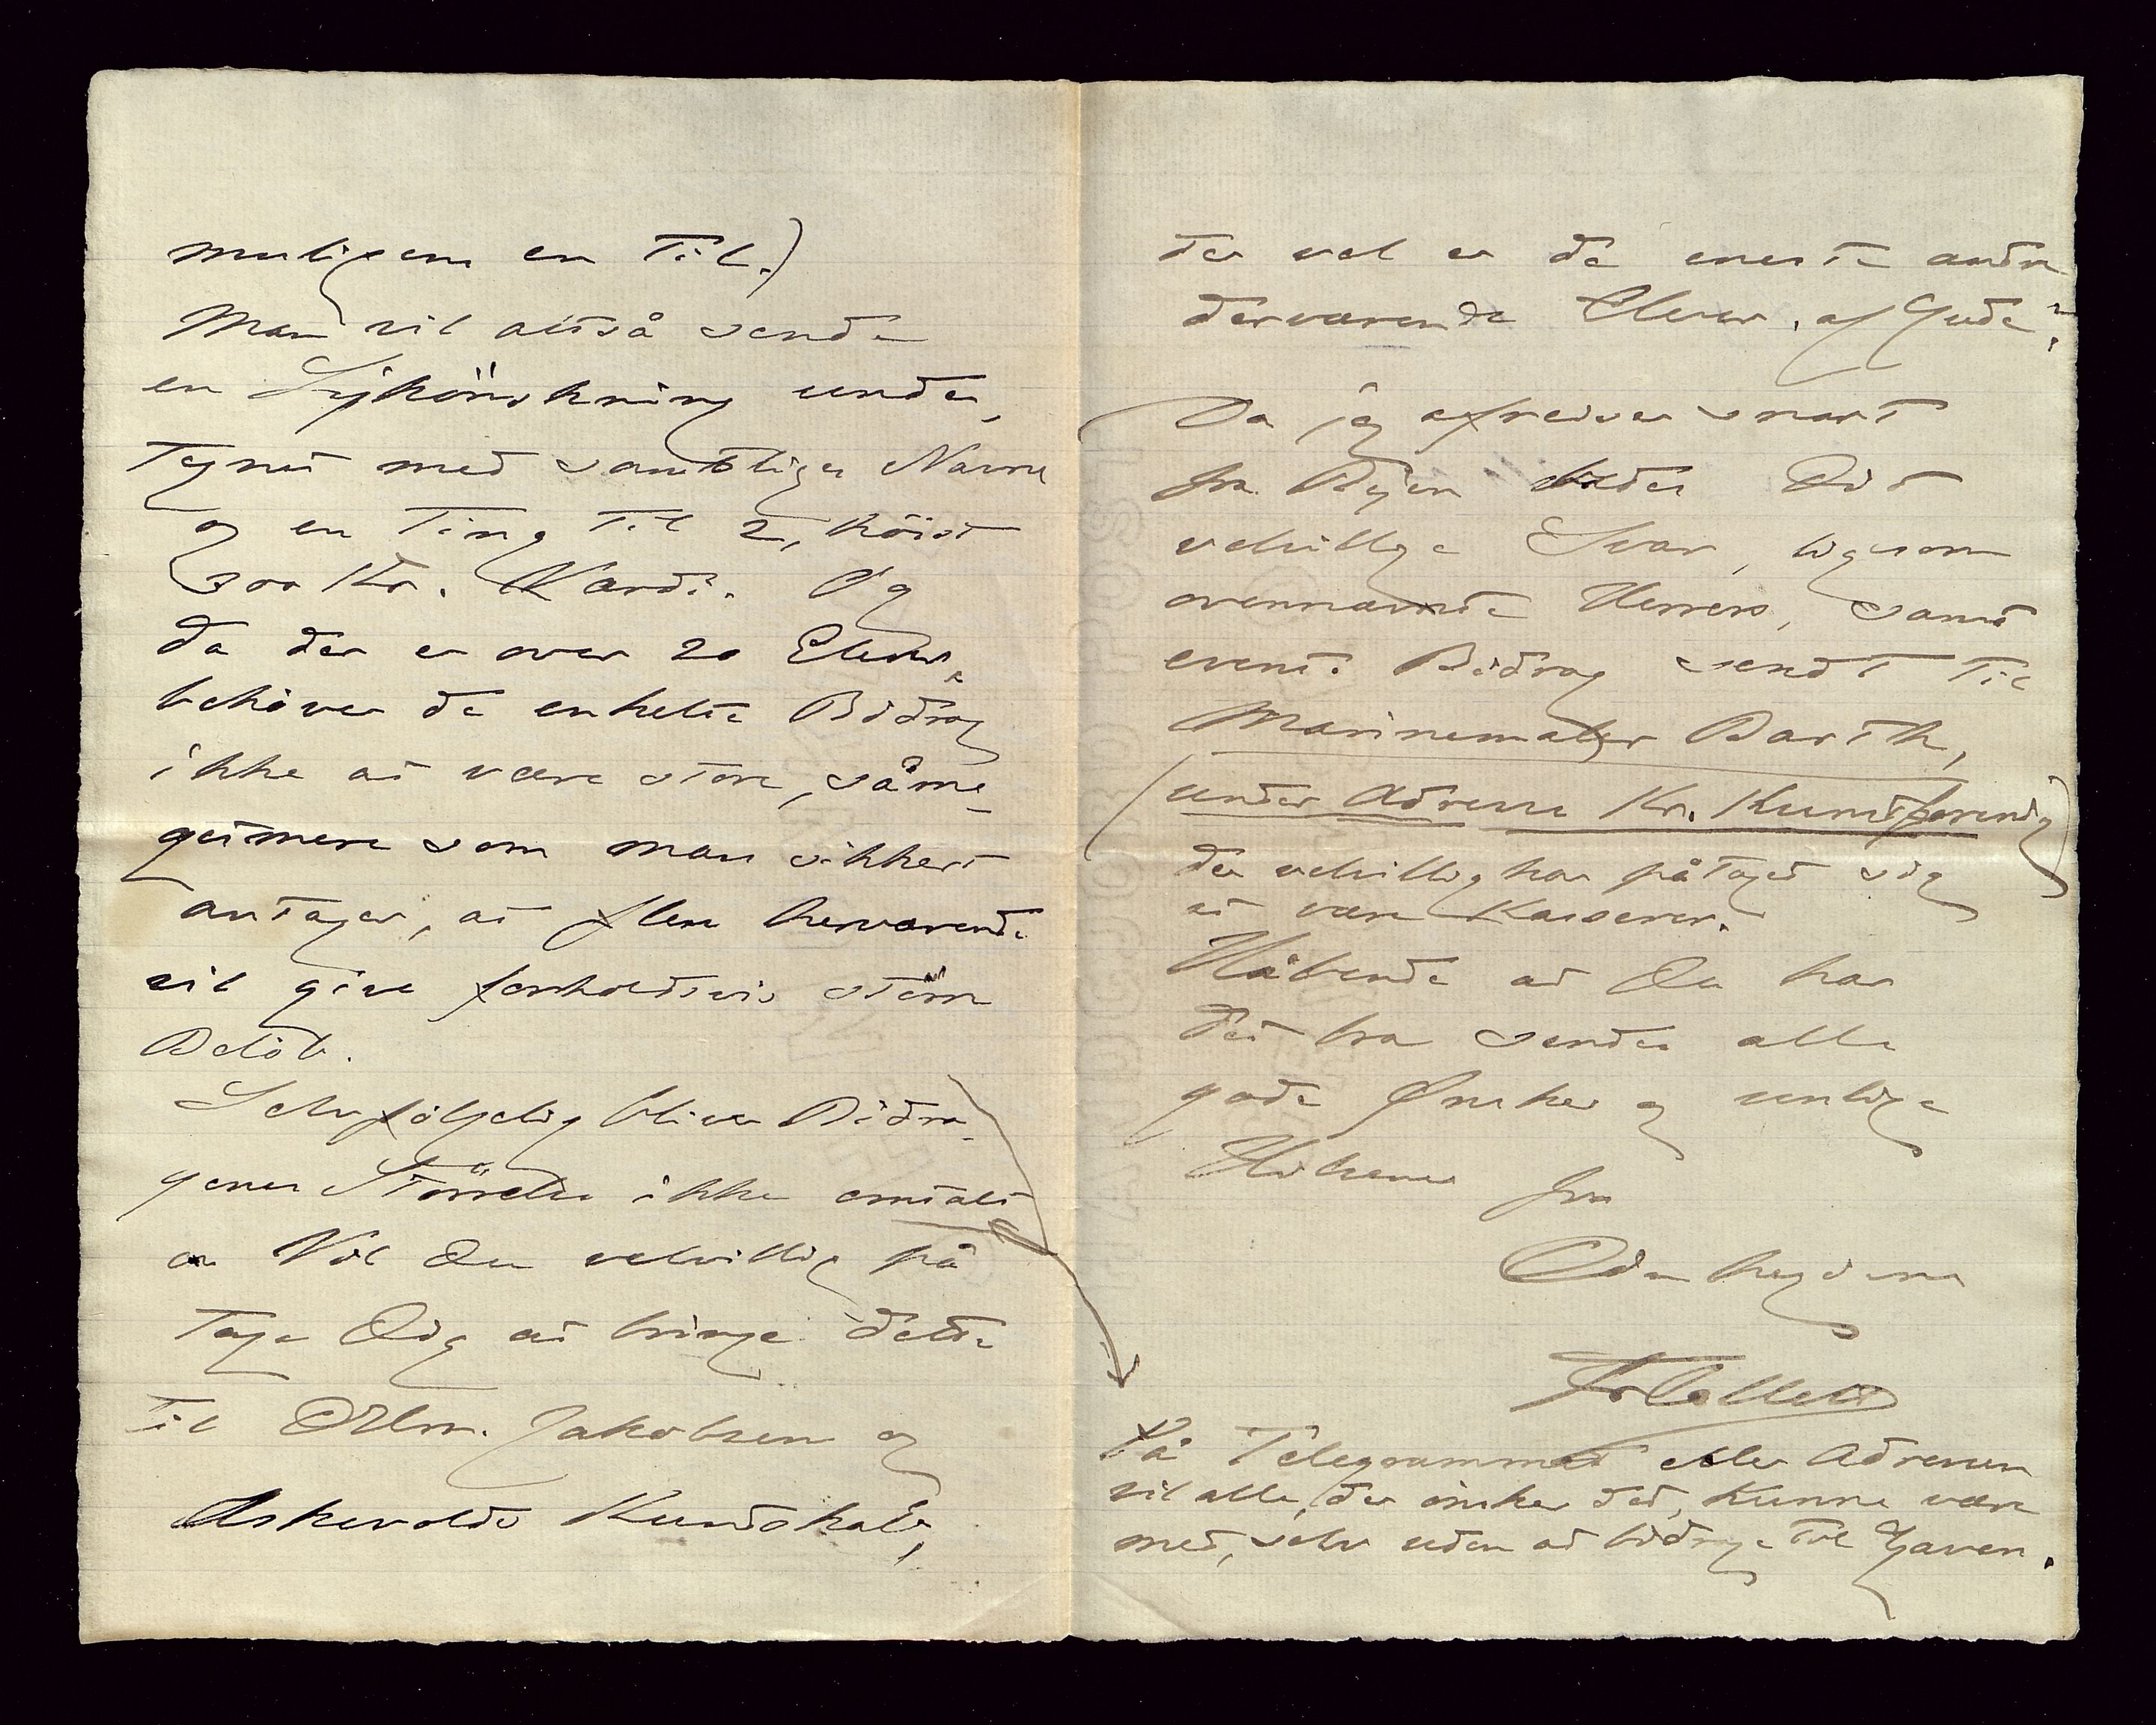 muligens en til.)
Man vil altså sende
en Lykönskning under,
tegnet med samtlige Navne
og en Ting til 2, höist
300 Kr. Værdi. Og
da der er over 20 Elever,
behöver de enkelte Bidrag
ikke at være store, såme-
getmere som man sikkert
antager, at flere herværende
vil give forholdsvis större
Belöb.
Selvfölgelig bliver Bidra-
genes Störrelse ikke omtalt
Vil Du velvillig på
tage Dig at bringe dette
til DHrr. Jakobsen og
Askevolds Kundskab,
der vel er de eneste andre
derværende Elever af Gude?
Da jeg afreiser snart
fra Byen bedes Dit
velvillige Svar, ligesom
ovennævnte Herrers, samt
event. Bidrag sendt til
Marinemaler Barth,
(under Adresse Kr. Kunstforening)
der velvillig har påtaget sig
at være Kasserer.
Håbende at Du har
det bra sendes alle
gode Ønsker og venlige
Hilsener fra
Din hengivne
Fr Collett
På Telegrammet eller Adressen
vil alle, der önsker det, kunne være
med, selv uden at bidrage til Gaven.